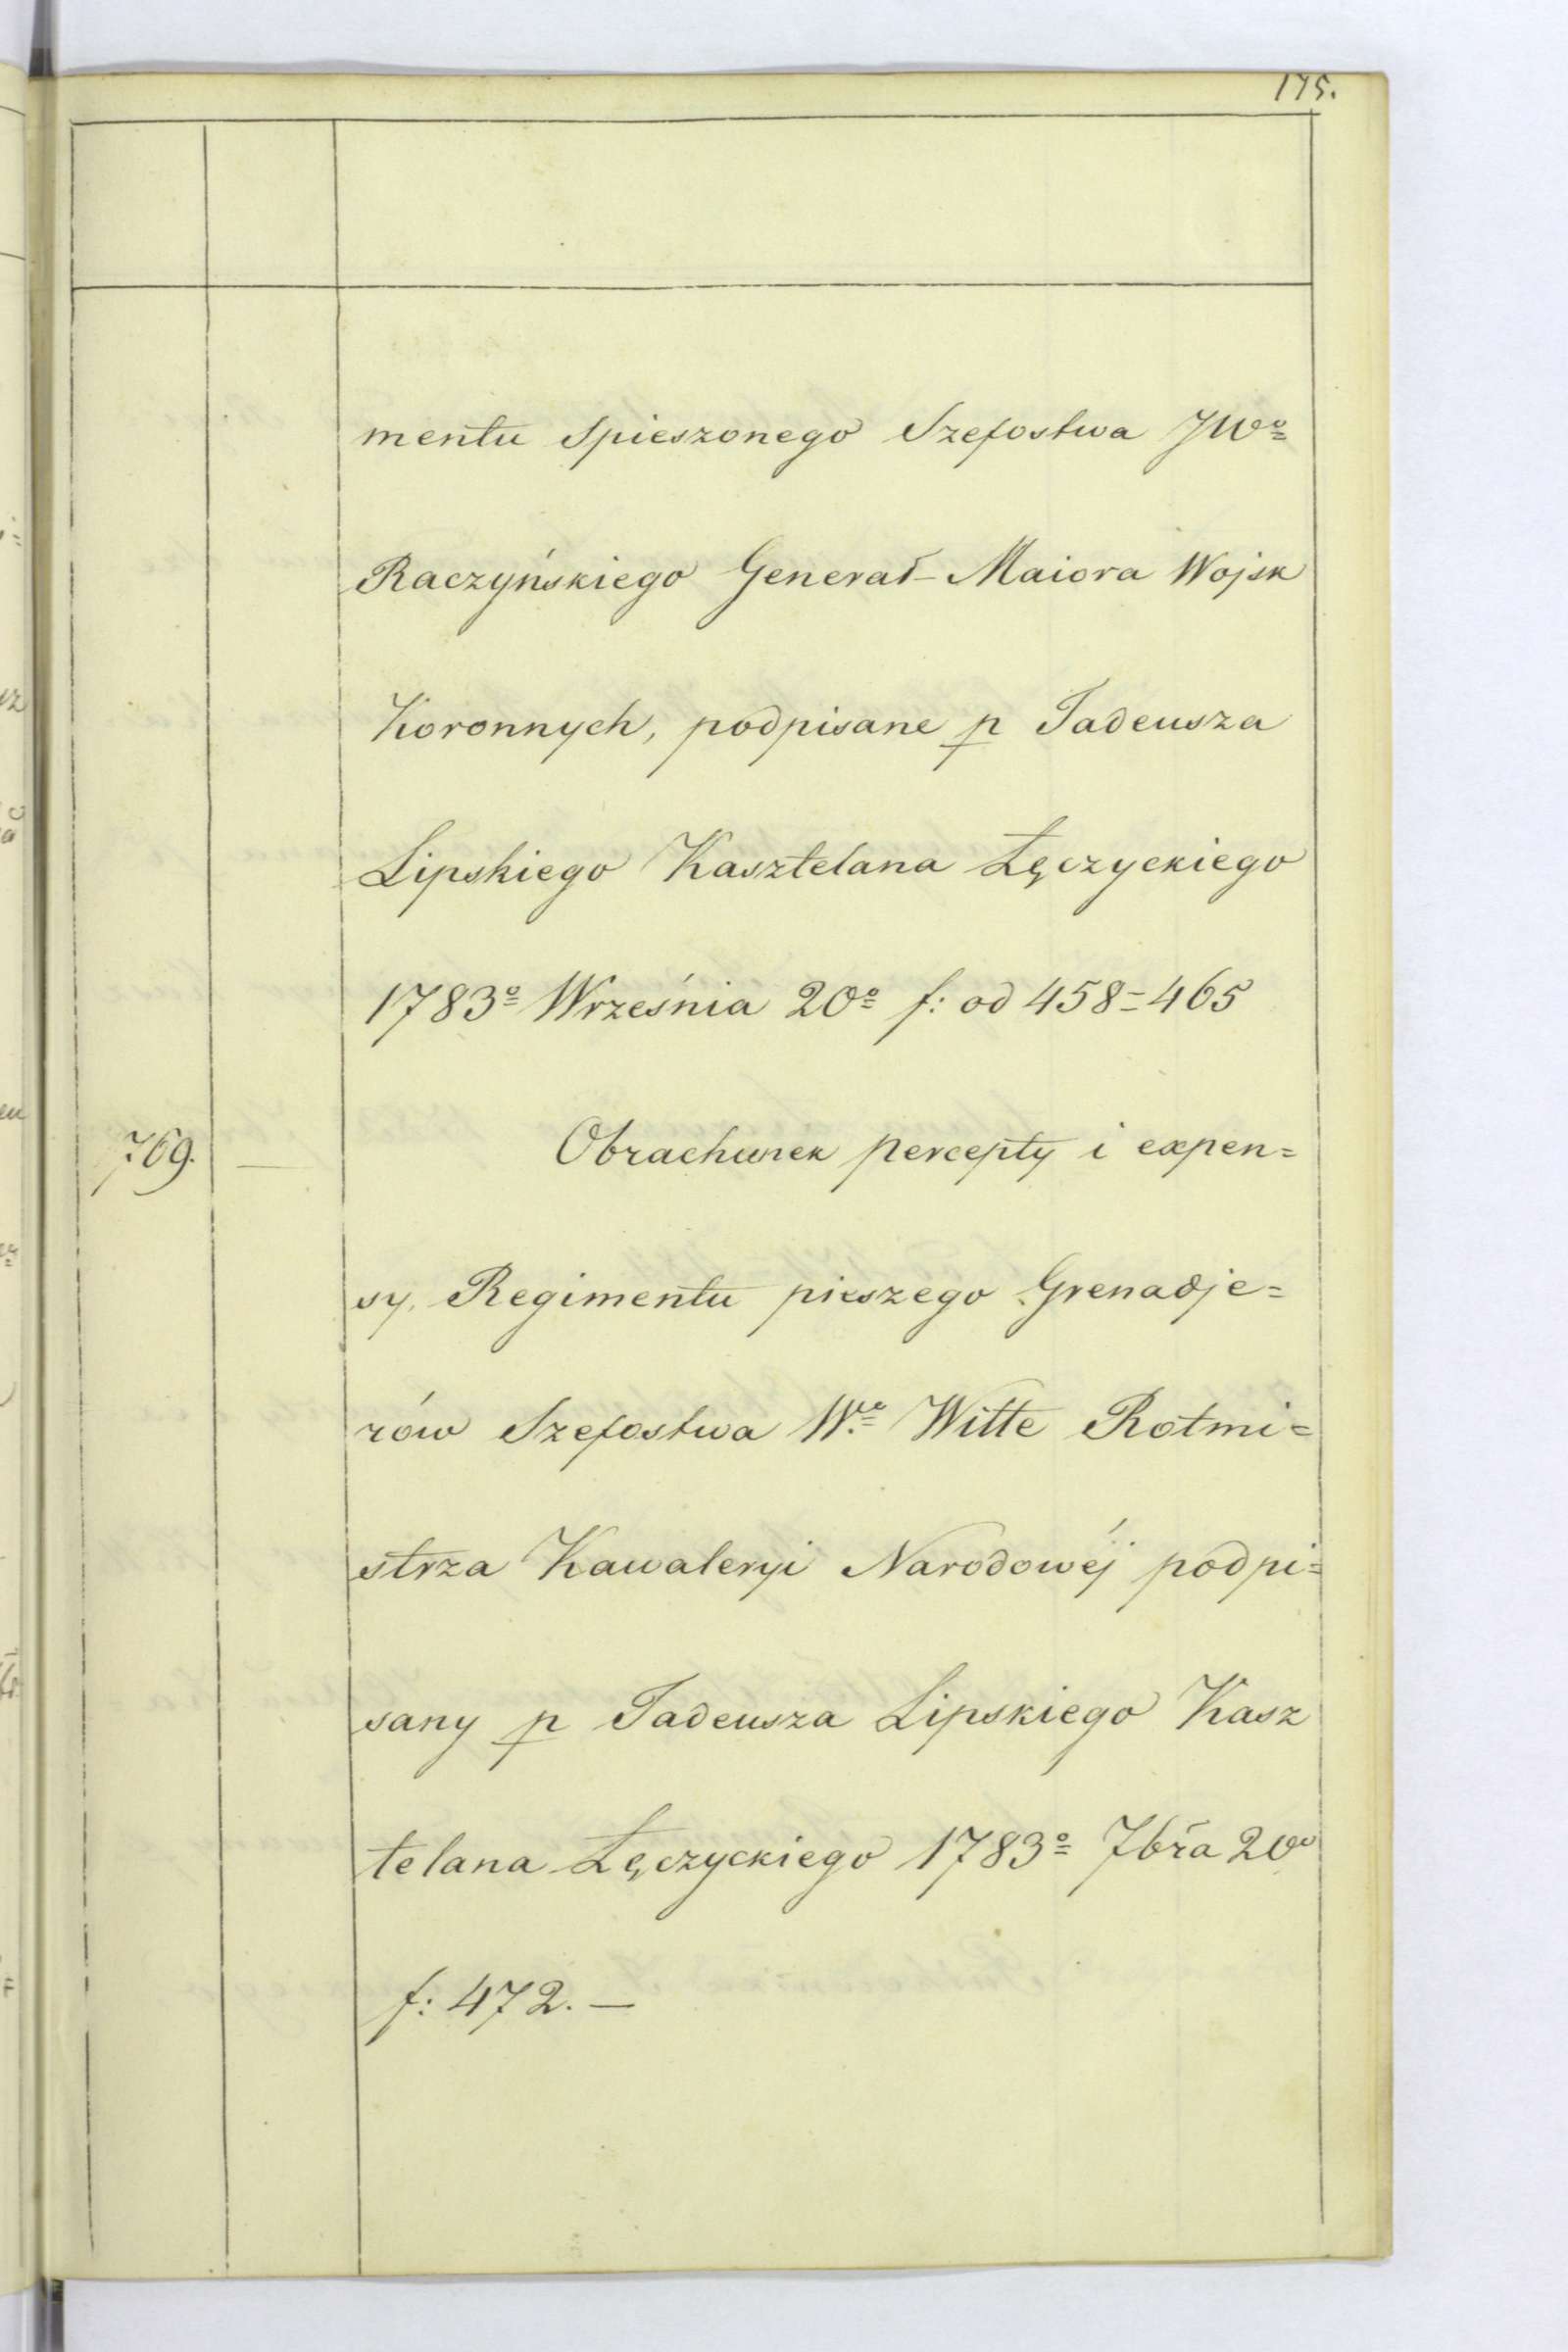 175.
mentu Spieszonego Szefostwa JWo
Raczyńskiego Generał-Maiora Wojsk
Koronnych, podpisane p Tadeusza
Lipskiego Kasztelana Łęczyckiego
1783o Września 20o f: od 458=465
769. — Obrachunek percepty i expen=
sy, Regimentu pieszego Grenadje=
rów Szefostwa W.o Witte Rotmi=
strza Kawaleryi Narodowéj podpi=
sany p Tadeusza Lipskiego Kasz
telana Łęczyckiego 1783o 7bra 20o
f: 472. —